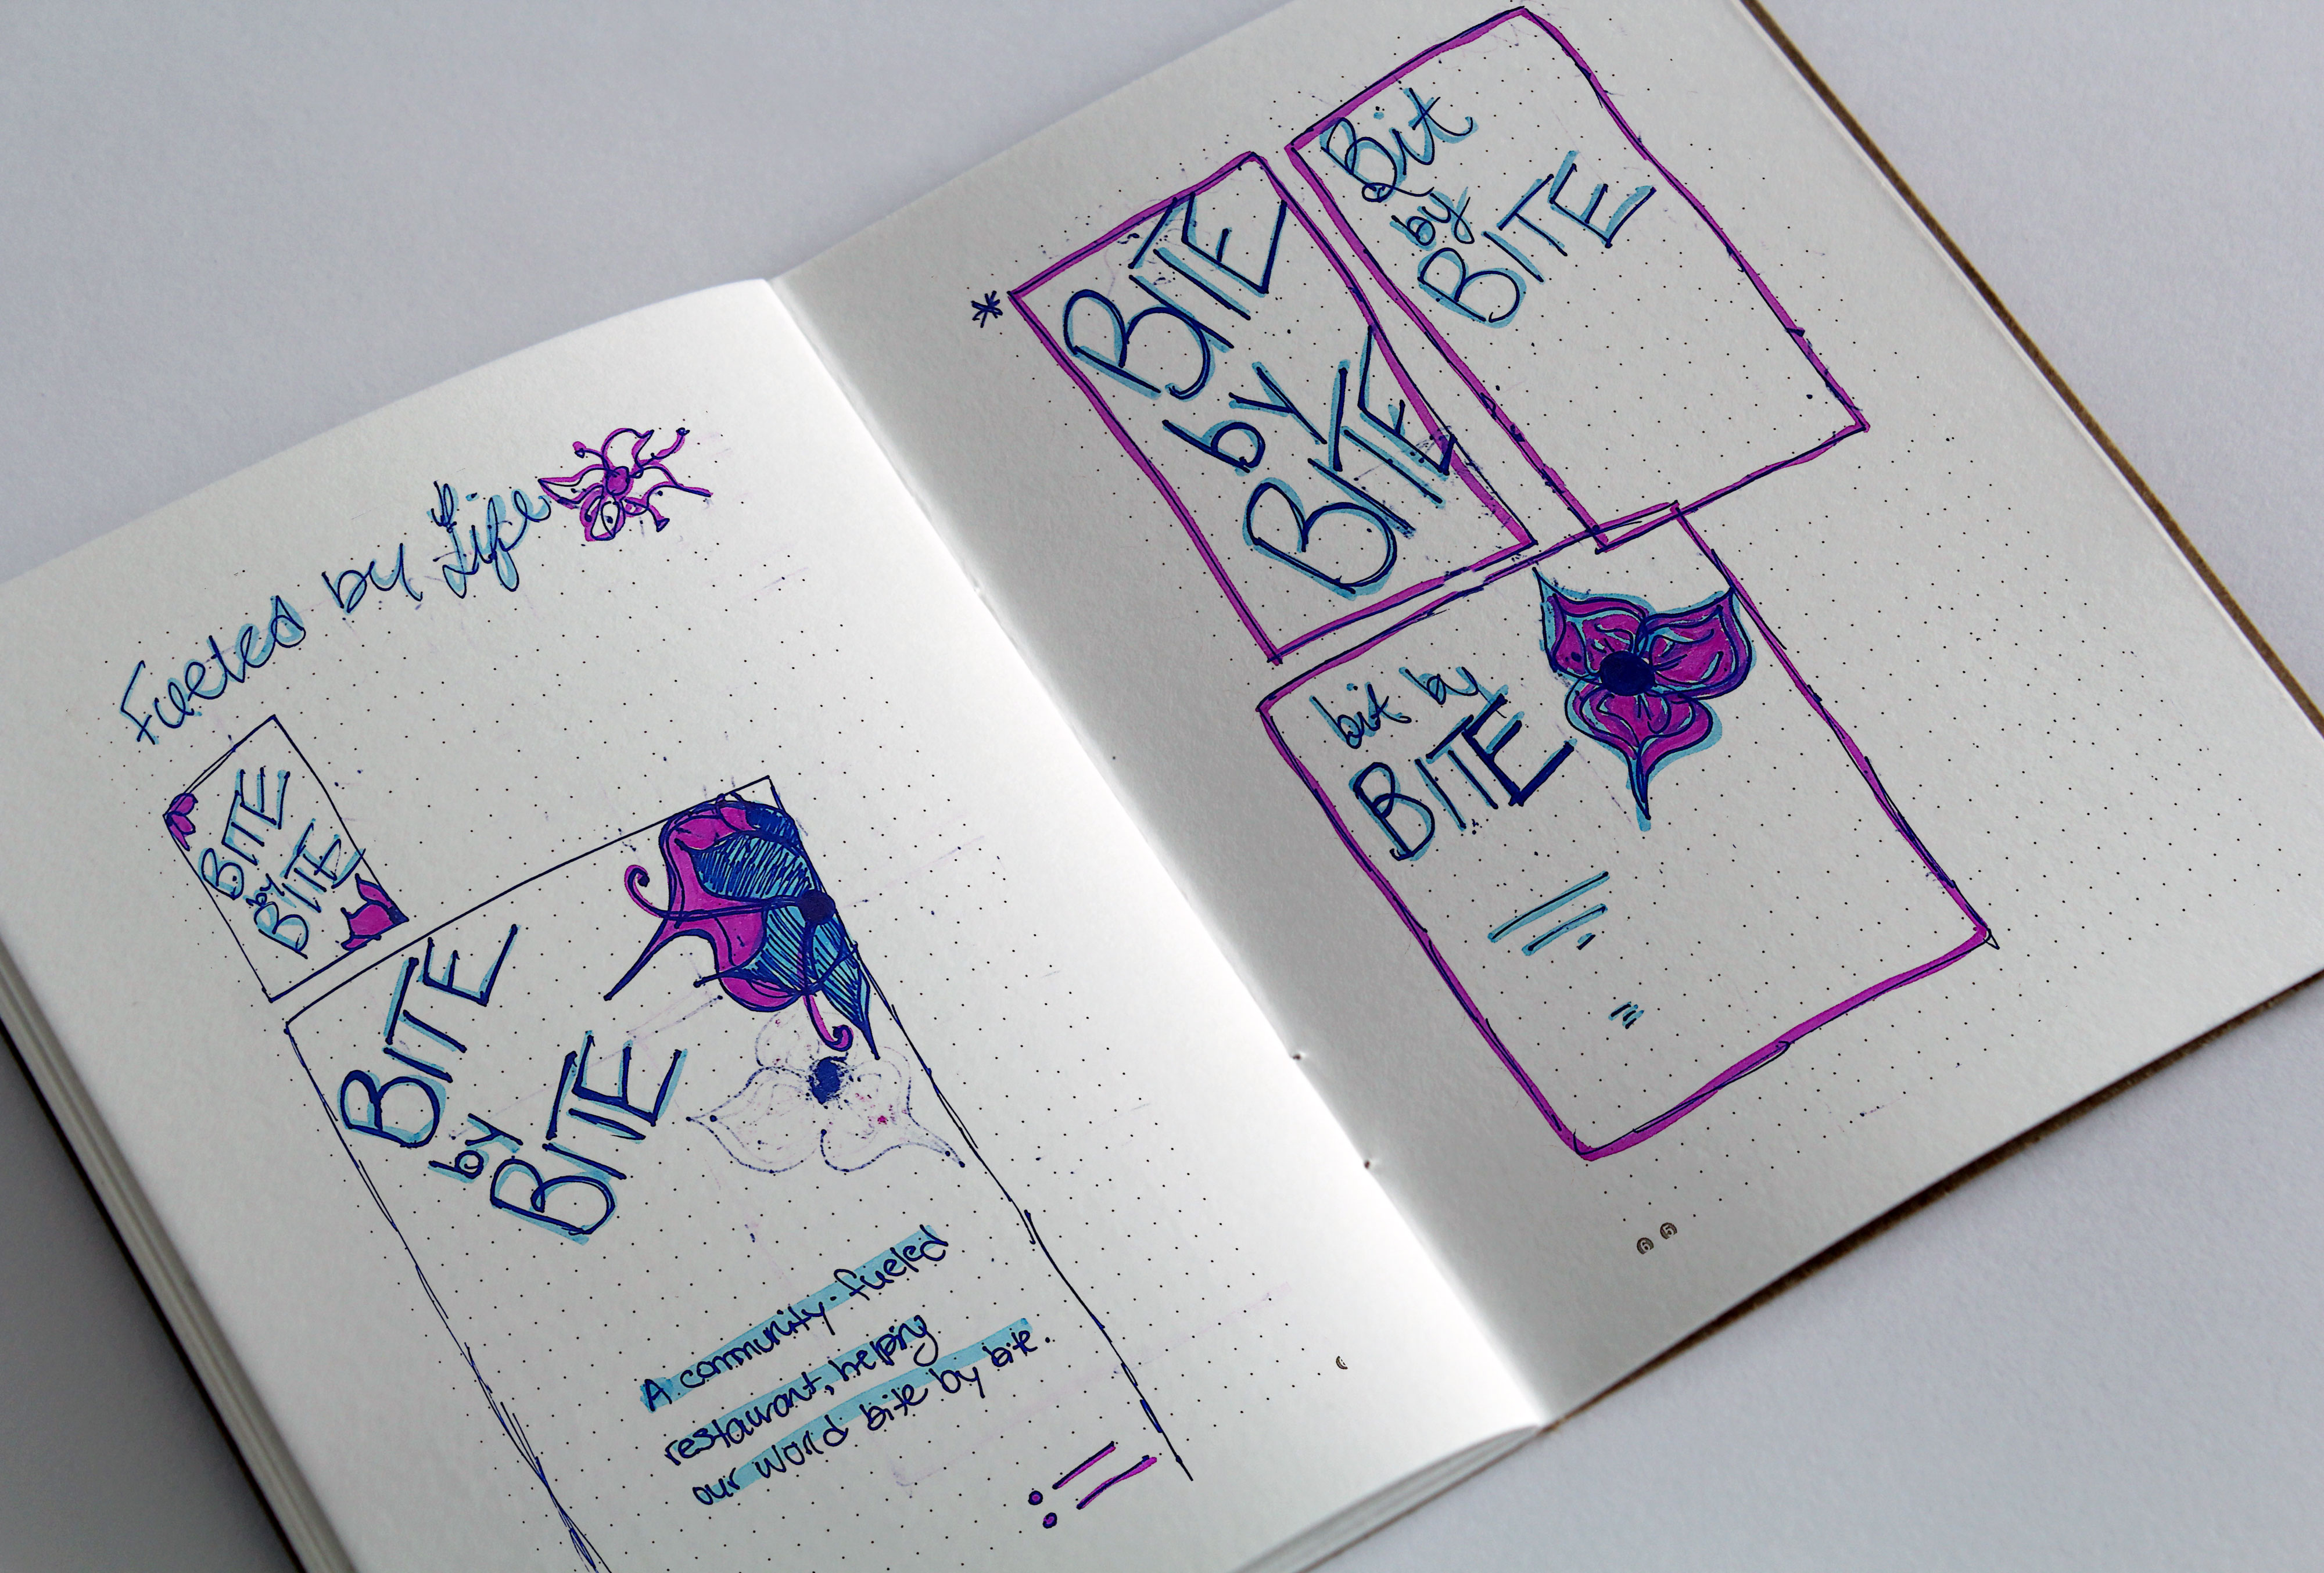 Fueled by Life
BITE
by
BITE
BITE
by
BITE
A community-fueled
restaurant, helping
our world bite by bite.
BITE
by
BITE
Bit
by
BITE
bit by
BITE